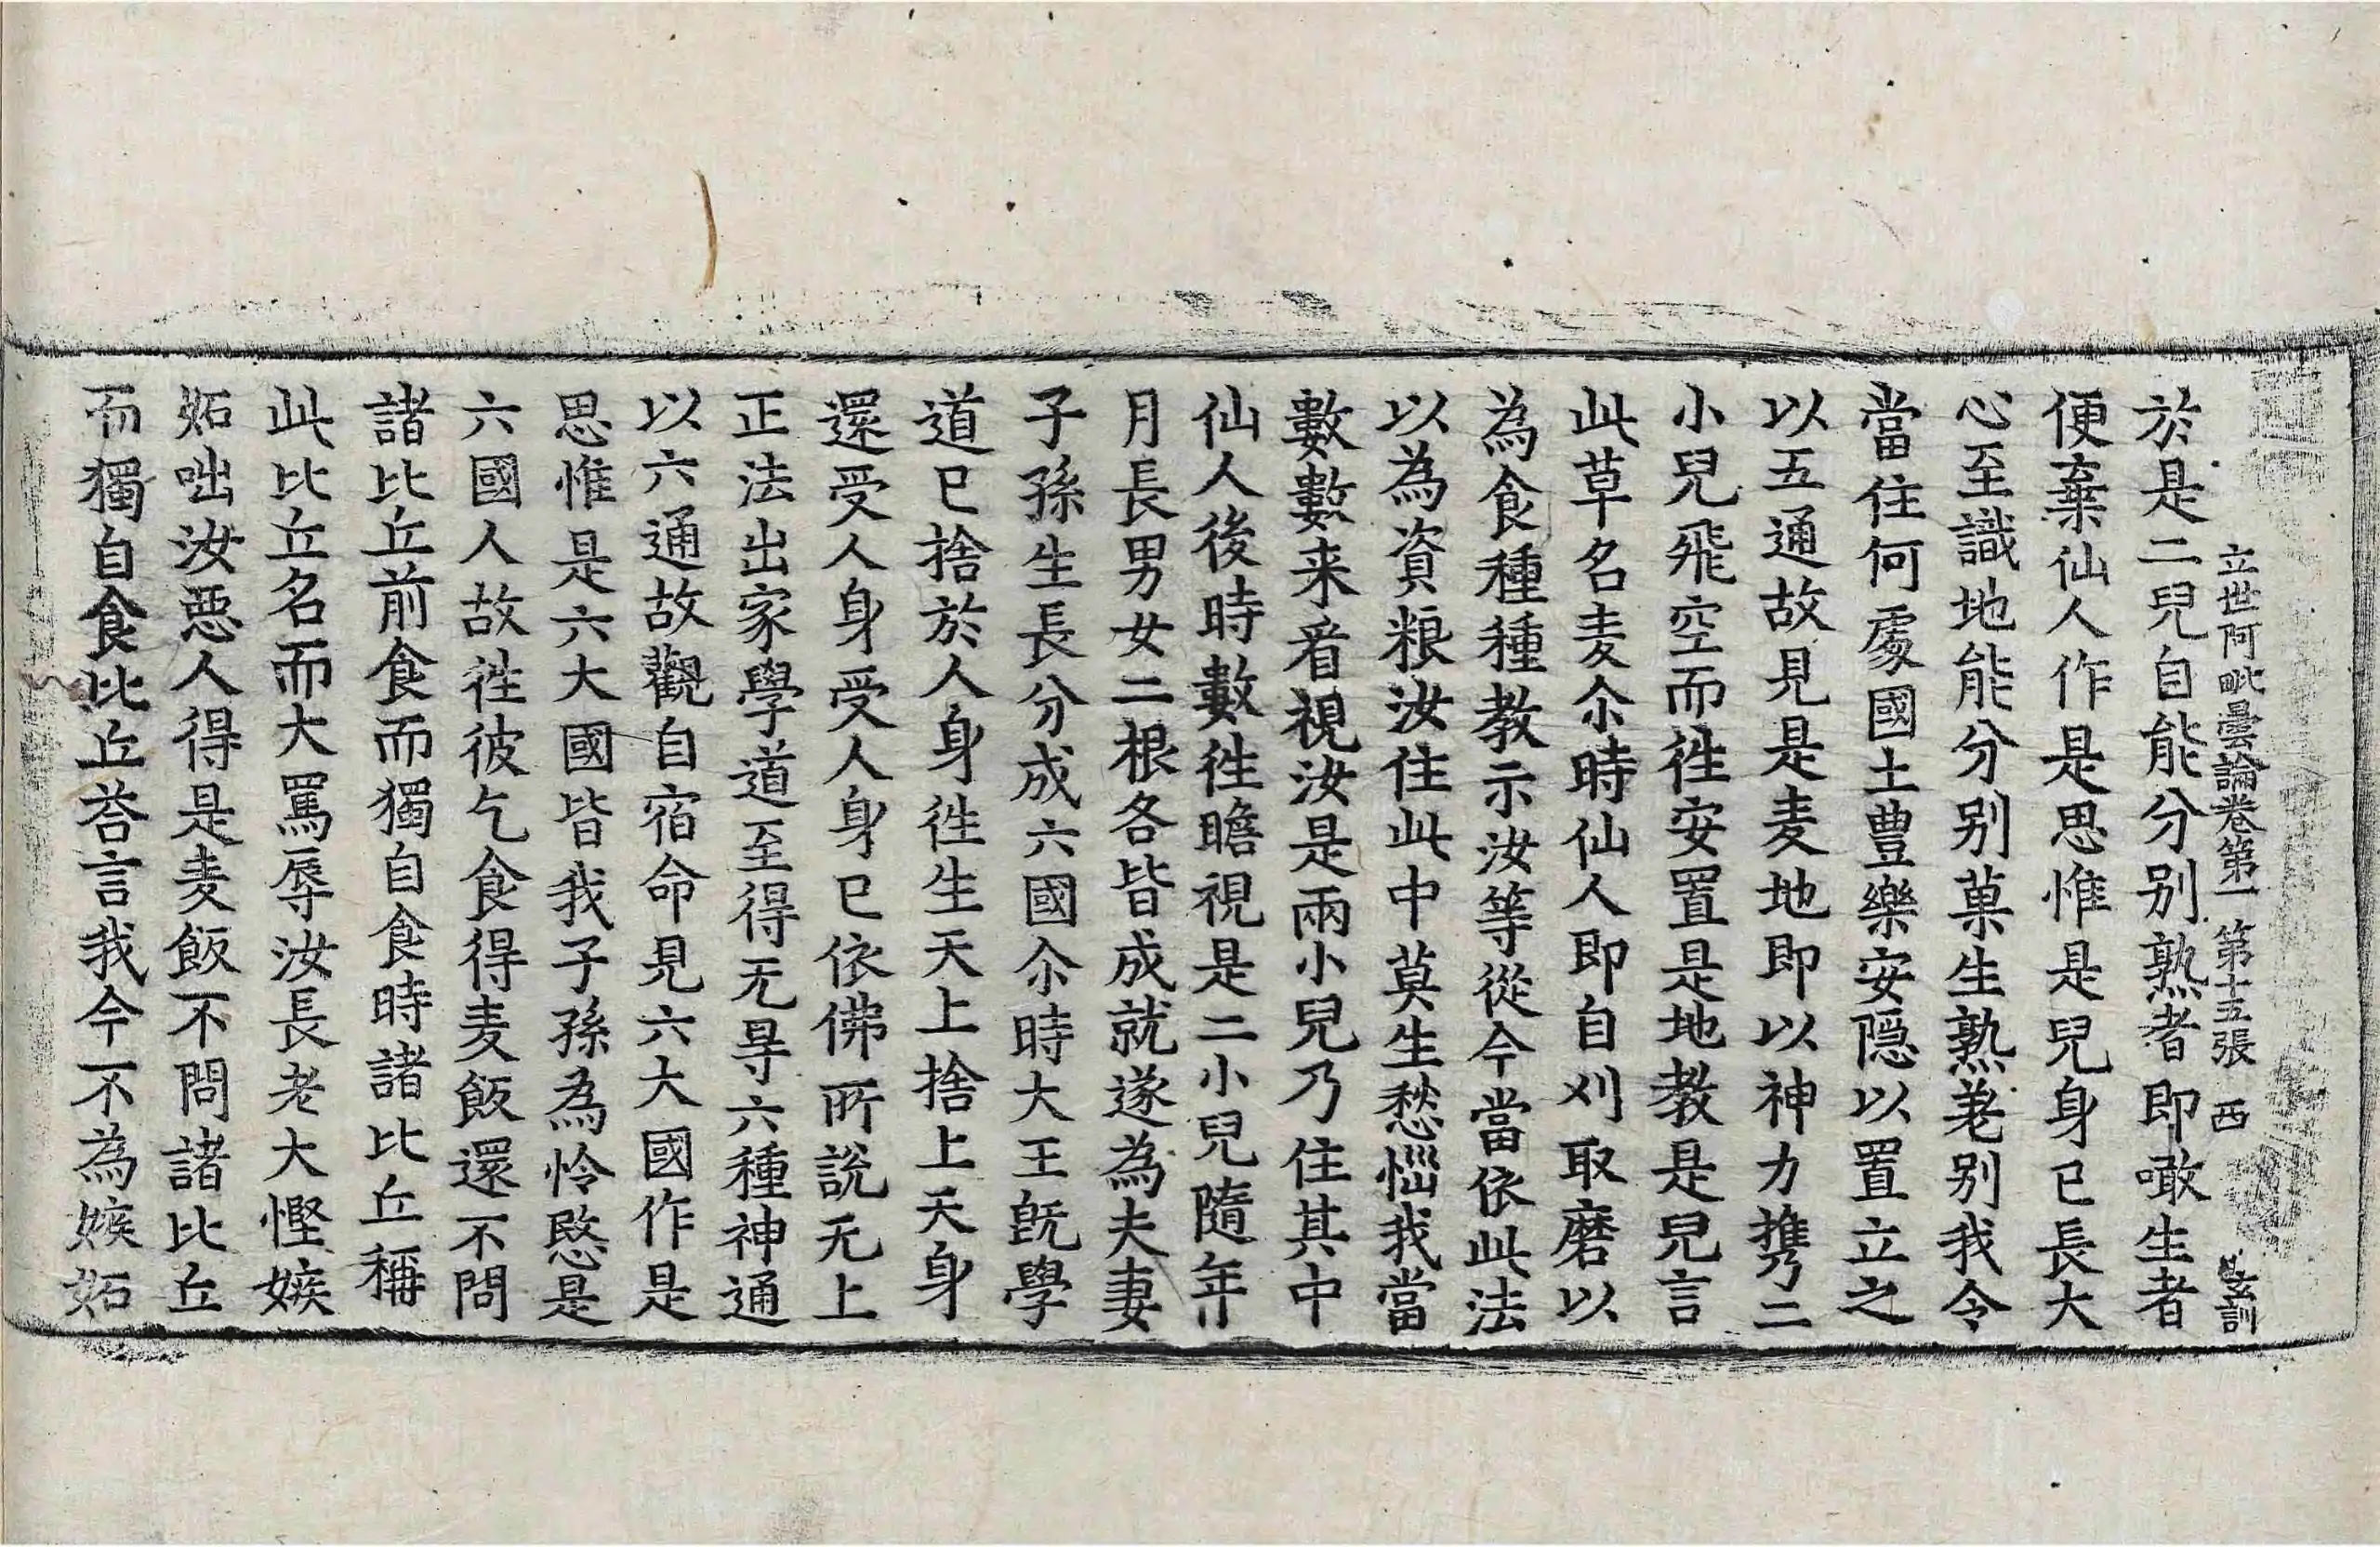 立世阿毗曇論卷第一 第十五張 西 玄訓
於是二兒自能分別熟者即噉生者
便棄仙人作是思惟是兒身已長大
心至識地能分別菓生熟差別我令
當住何處國土豊樂安隱以置立之
以五通故見是麦地即以神力攜二
小兒飛空而徃安置是地教是兒言
此草名麦尒時仙人即自刈取磨以
為食種種教示汝等從今當依此法
以為資粮汝住此中莫生愁惱我當
數數来看視汝是兩小兒乃住其中
仙人後時數徃瞻視是二小兒隨年
月長男女二根各皆成就遂為夫妻
子孫生長分成六國尒時大王旣學
道已捨於人身徃生天上捨上天身
還受人身受人身已依佛所說无上
正法出家學道至得无㝵六種神通
以六通故觀自宿命見六大國作是
思惟是六大國皆我子孫為怜愍是
六國人故徃彼乞食得麦飯還不問
諸比丘前食而獨自食時諸比丘稱
此比丘名而大罵辱汝長老大慳嫉
妬咄汝惡人得是麦飯不問諸比丘
而獨自食比丘荅言我今不為嫉妬